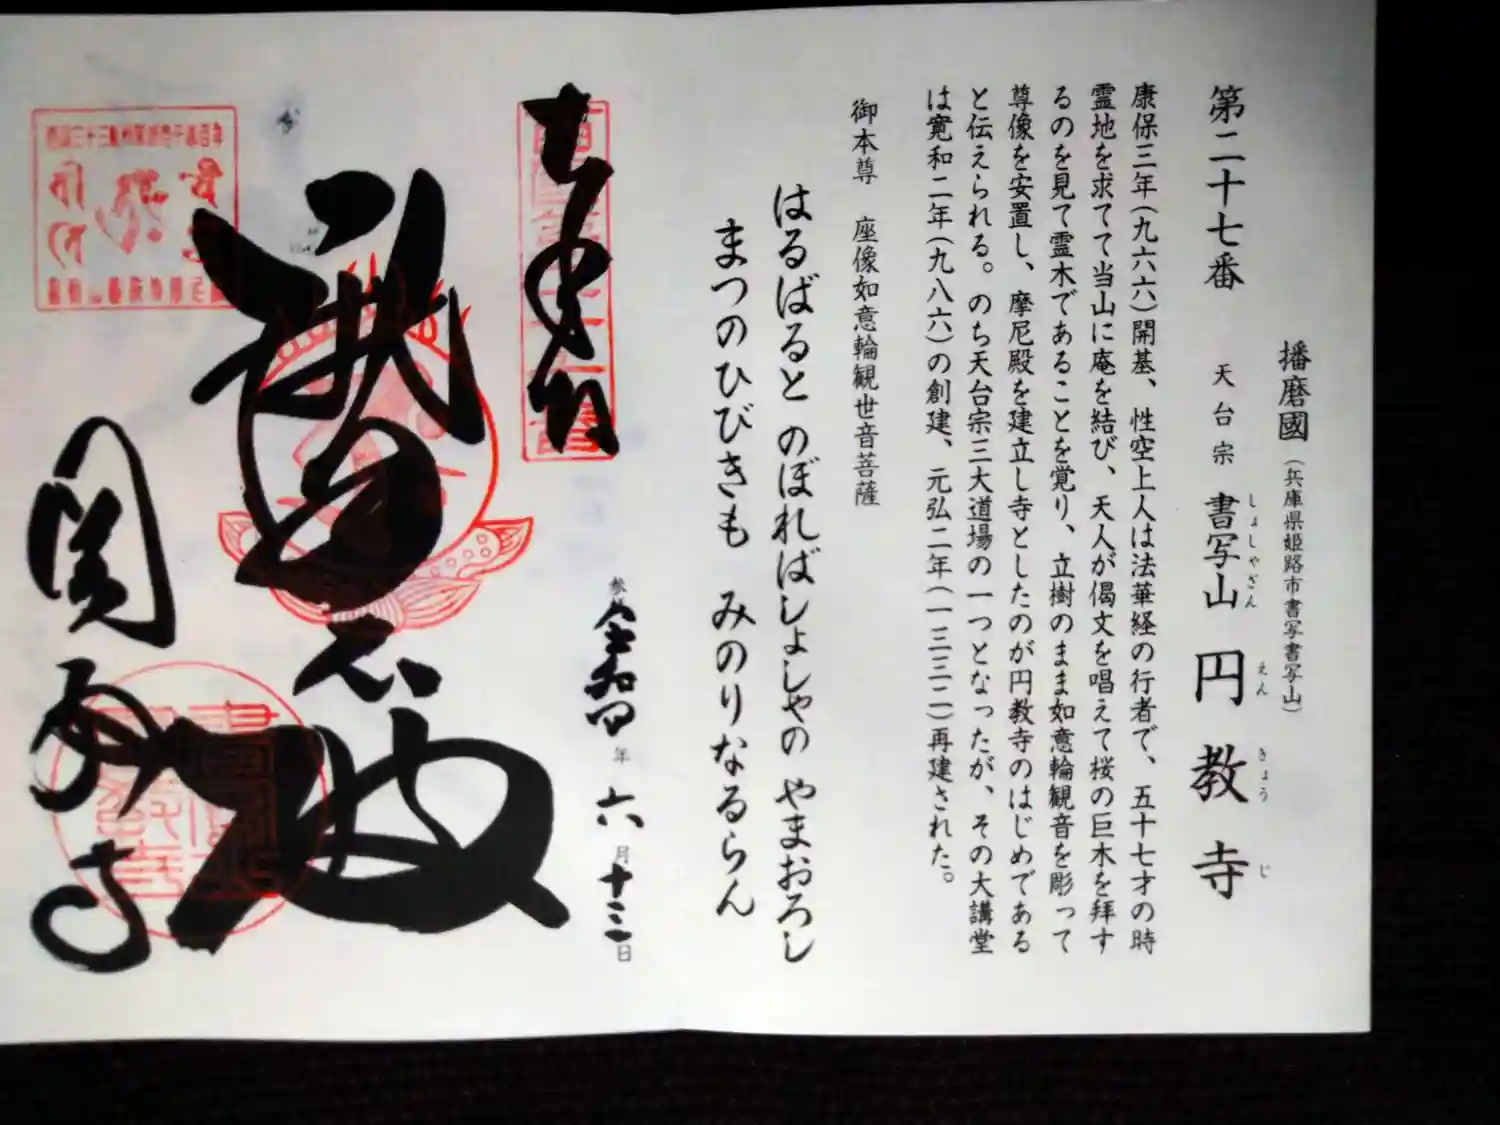 播磨國（兵庫県姫路市書写書写山）
第二十七番　天台宗　書写山　円教寺
しょしゃざん　えんきょうじ
康保三年(九六六)開基、性空上人は法華経の行者で、五十七才の時
霊地を求てて当山に庵を結び、天人が偈文を唱えて桜の巨木を拝す
るのを見て霊木であることを覚り、立樹のまま如意輪観音を彫って
尊像を安置し、摩尼殿を建立し寺としたのが円教寺のはじめである
と伝えられる。のち天台宗三大道場の一つとなったが、その大講堂
は寛和二年(九八六)の創建、元弘二年(一三三二)再建された。
御本尊　座像如意輪観世音菩薩
はるばると のぼればしょしゃの やまおろし
まつのひびきも みのりなるらん
令和四年六月十三日